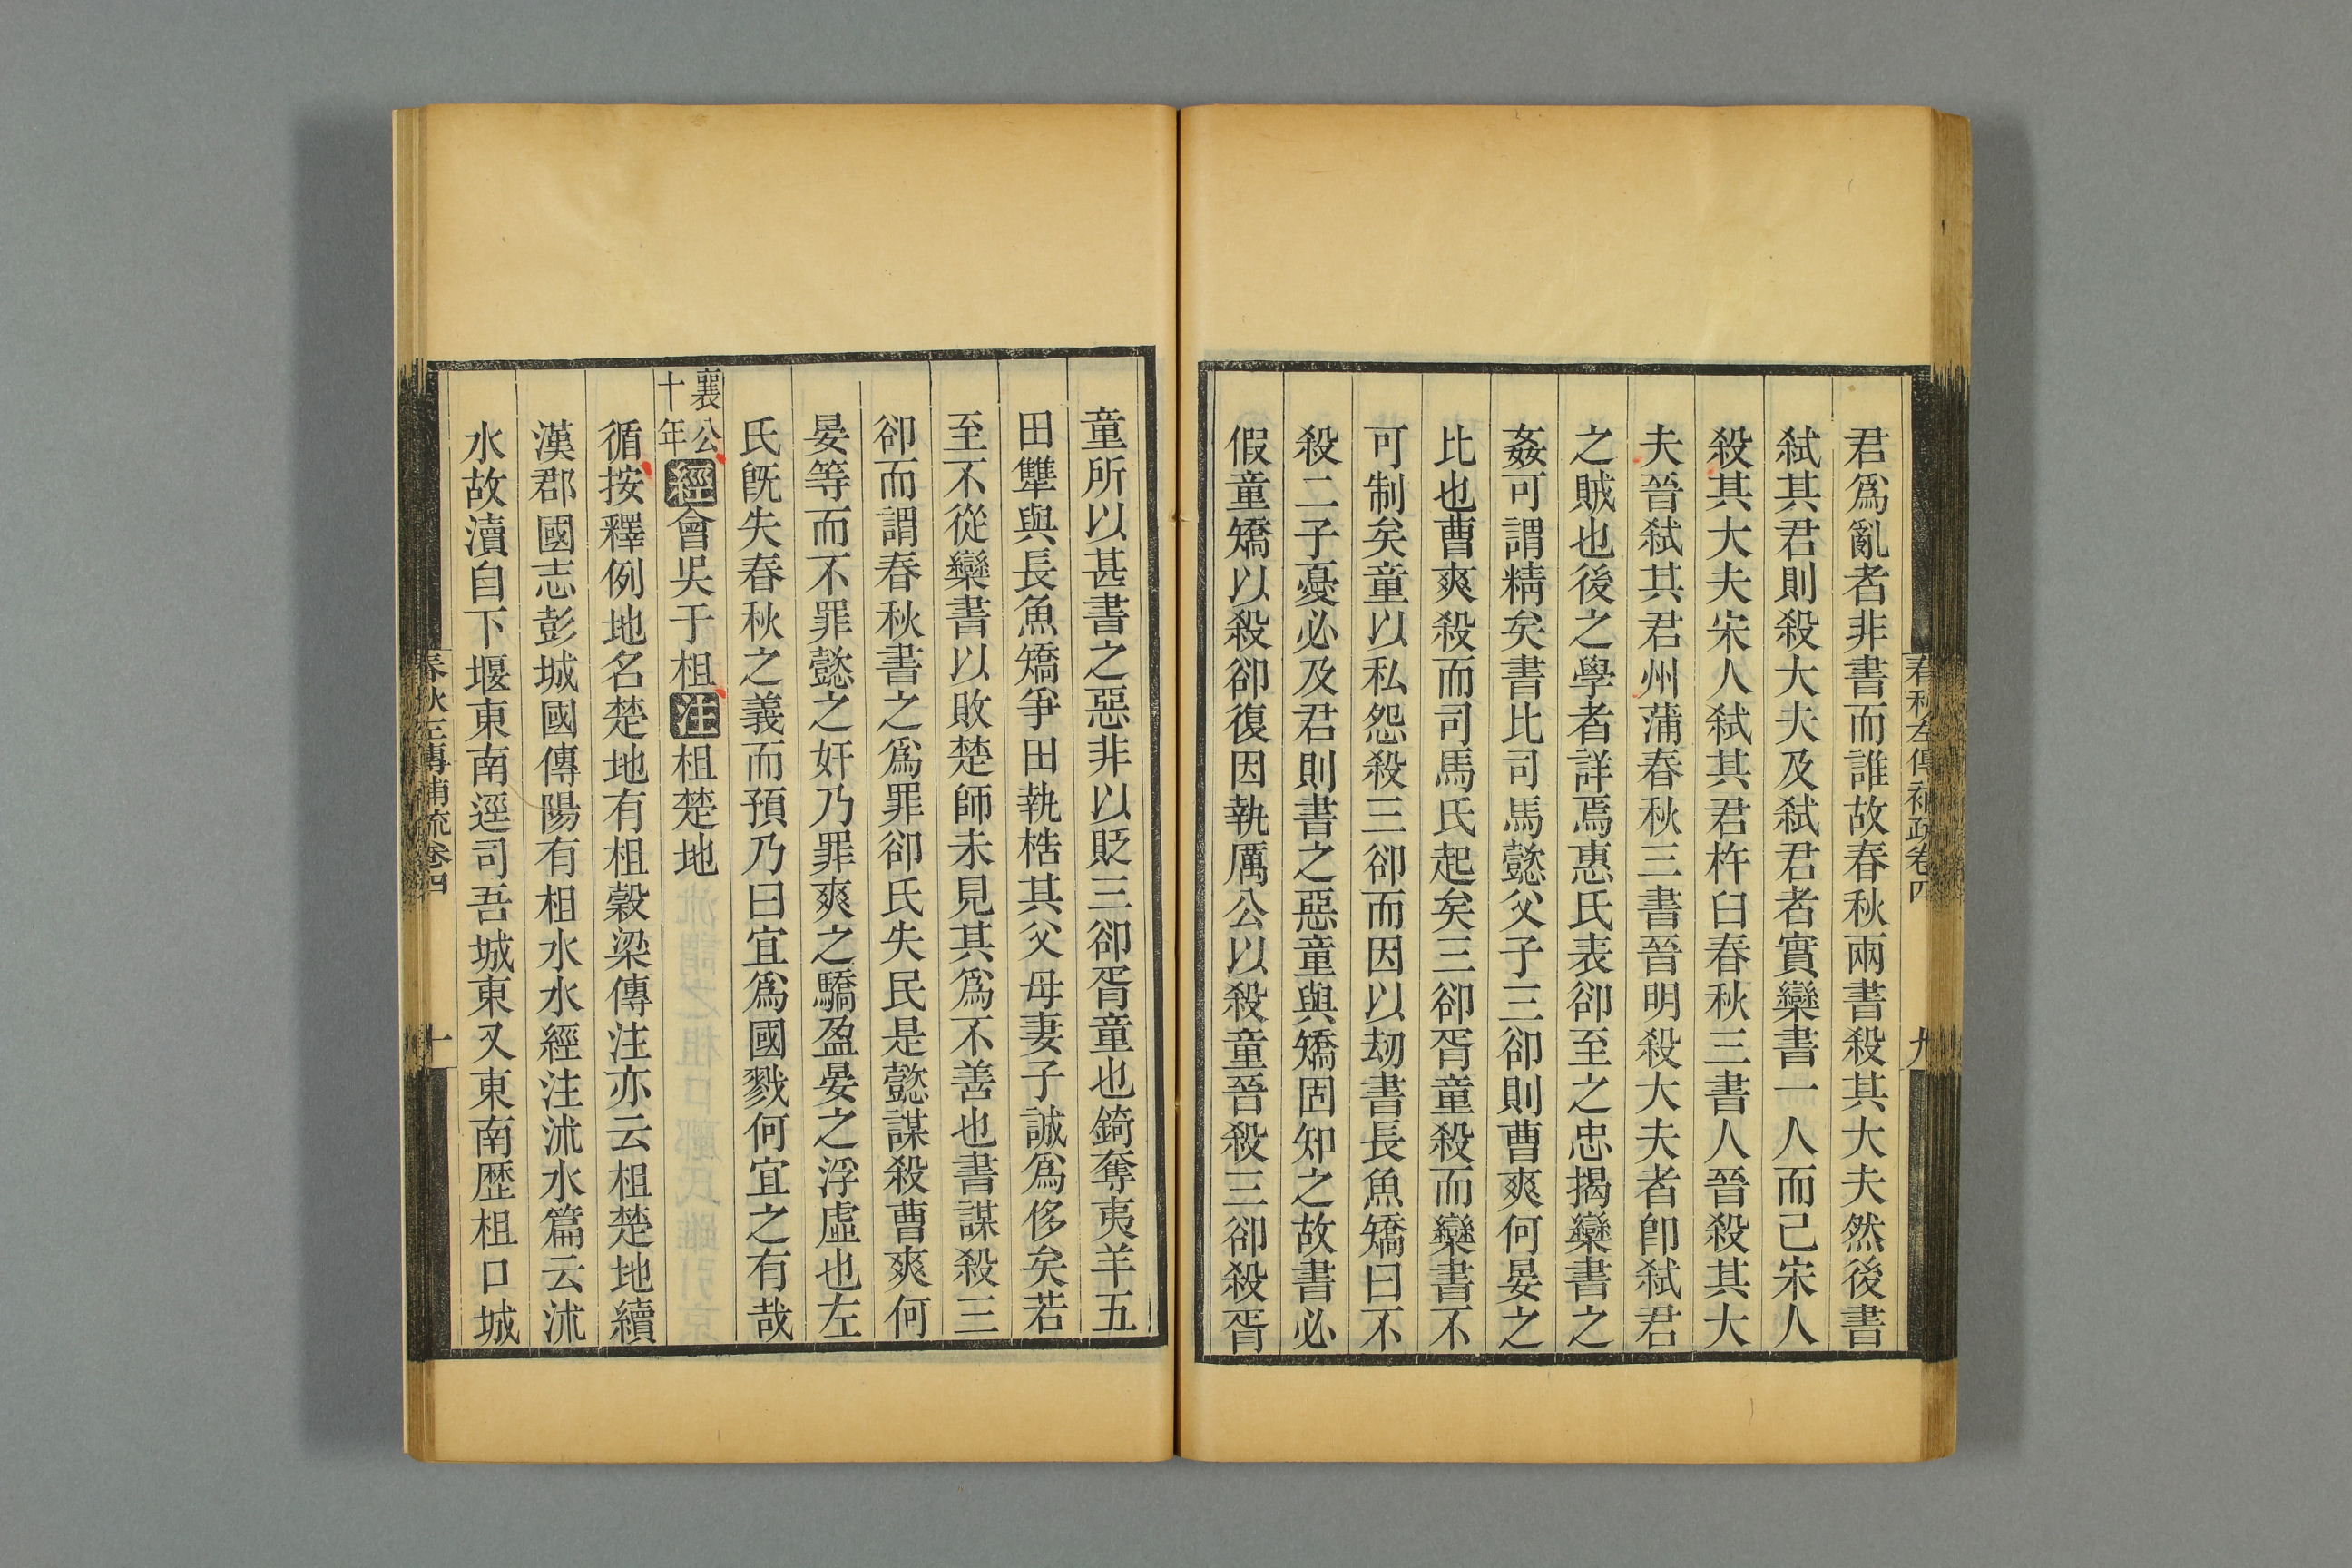 君爲亂者非書而誰故春秋兩書殺其大夫然後書
弑其君則殺大夫及弑君者實欒書一人而已宋人
殺其大夫宋人弑其君杵臼春秋三書人晉殺其大
夫晉弑其君州蒲春秋三書晉明殺大夫者卽弑君
之賊也後之學者詳焉惠氏表卻至之忠揭欒書之
姦可謂精矣書比司馬懿父子三卻則曹爽何晏之
比也曹爽殺而司馬氏起矣三卻胥童殺而欒書不
可制矣童以私怨殺三卻而因以刼書長魚矯曰不
殺二子憂必及君則書之惡童與矯固知之故書必
假童矯以殺卻復因執厲公以殺童晉殺三卻殺胥
春秋左傳補疏卷四
九
童所以甚書之惡非以貶三卻胥童也錡奪夷羊五
田犫與長魚矯爭田執梏其父母妻子誠爲侈矣若
至不從欒書以敗楚師未見其爲不善也書謀殺三
卻而謂春秋書之爲罪卻氏失民是懿謀殺曹爽何
晏等而不罪懿之奸乃罪爽之驕盈晏之浮虛也左
氏旣失春秋之義而預乃曰宜爲國戮何宜之有哉
襄公十年經會吳于柤注柤楚地
循按釋例地名楚地有柤榖梁傳注亦云柤楚地續
漢郡國志彭城國傅陽有柤水水經注沭水篇云沭
水故瀆自下堰東南逕司吾城東又東南歷柤口城
春秋左傳補疏卷四